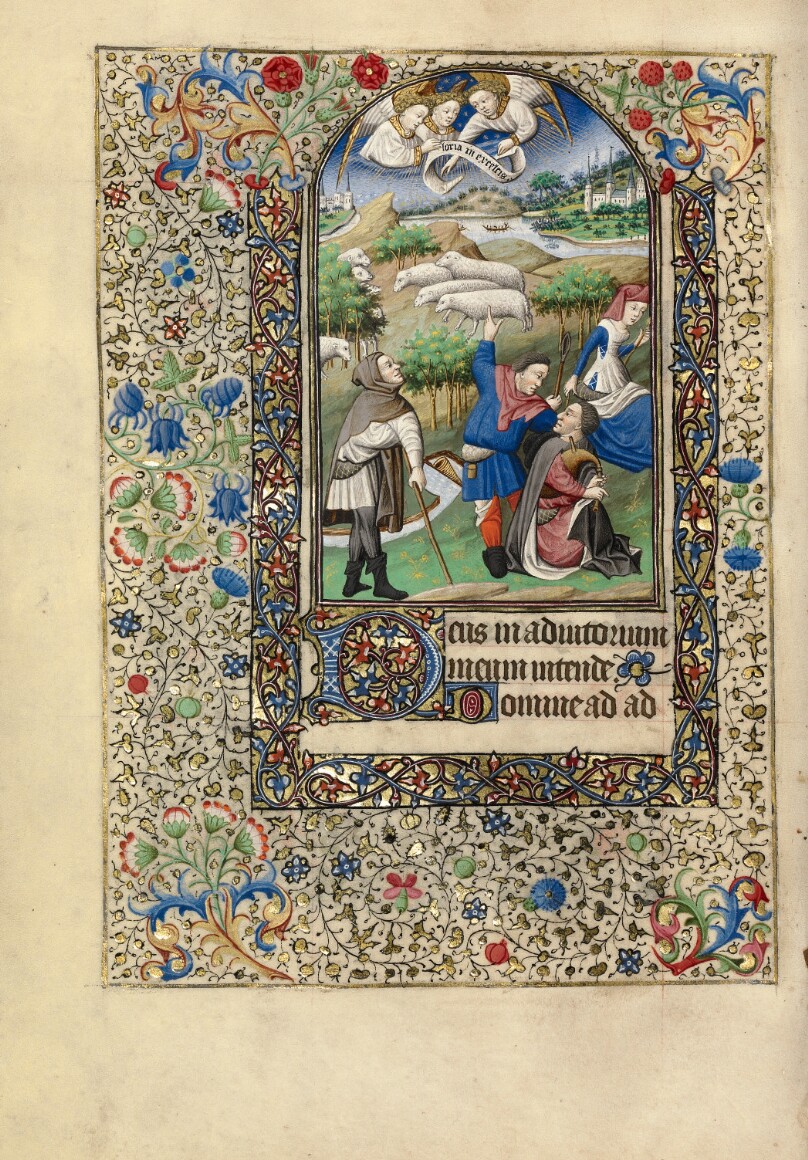 loria in excelsis
Deus in adiutorium
meum intende
Domine ad ad